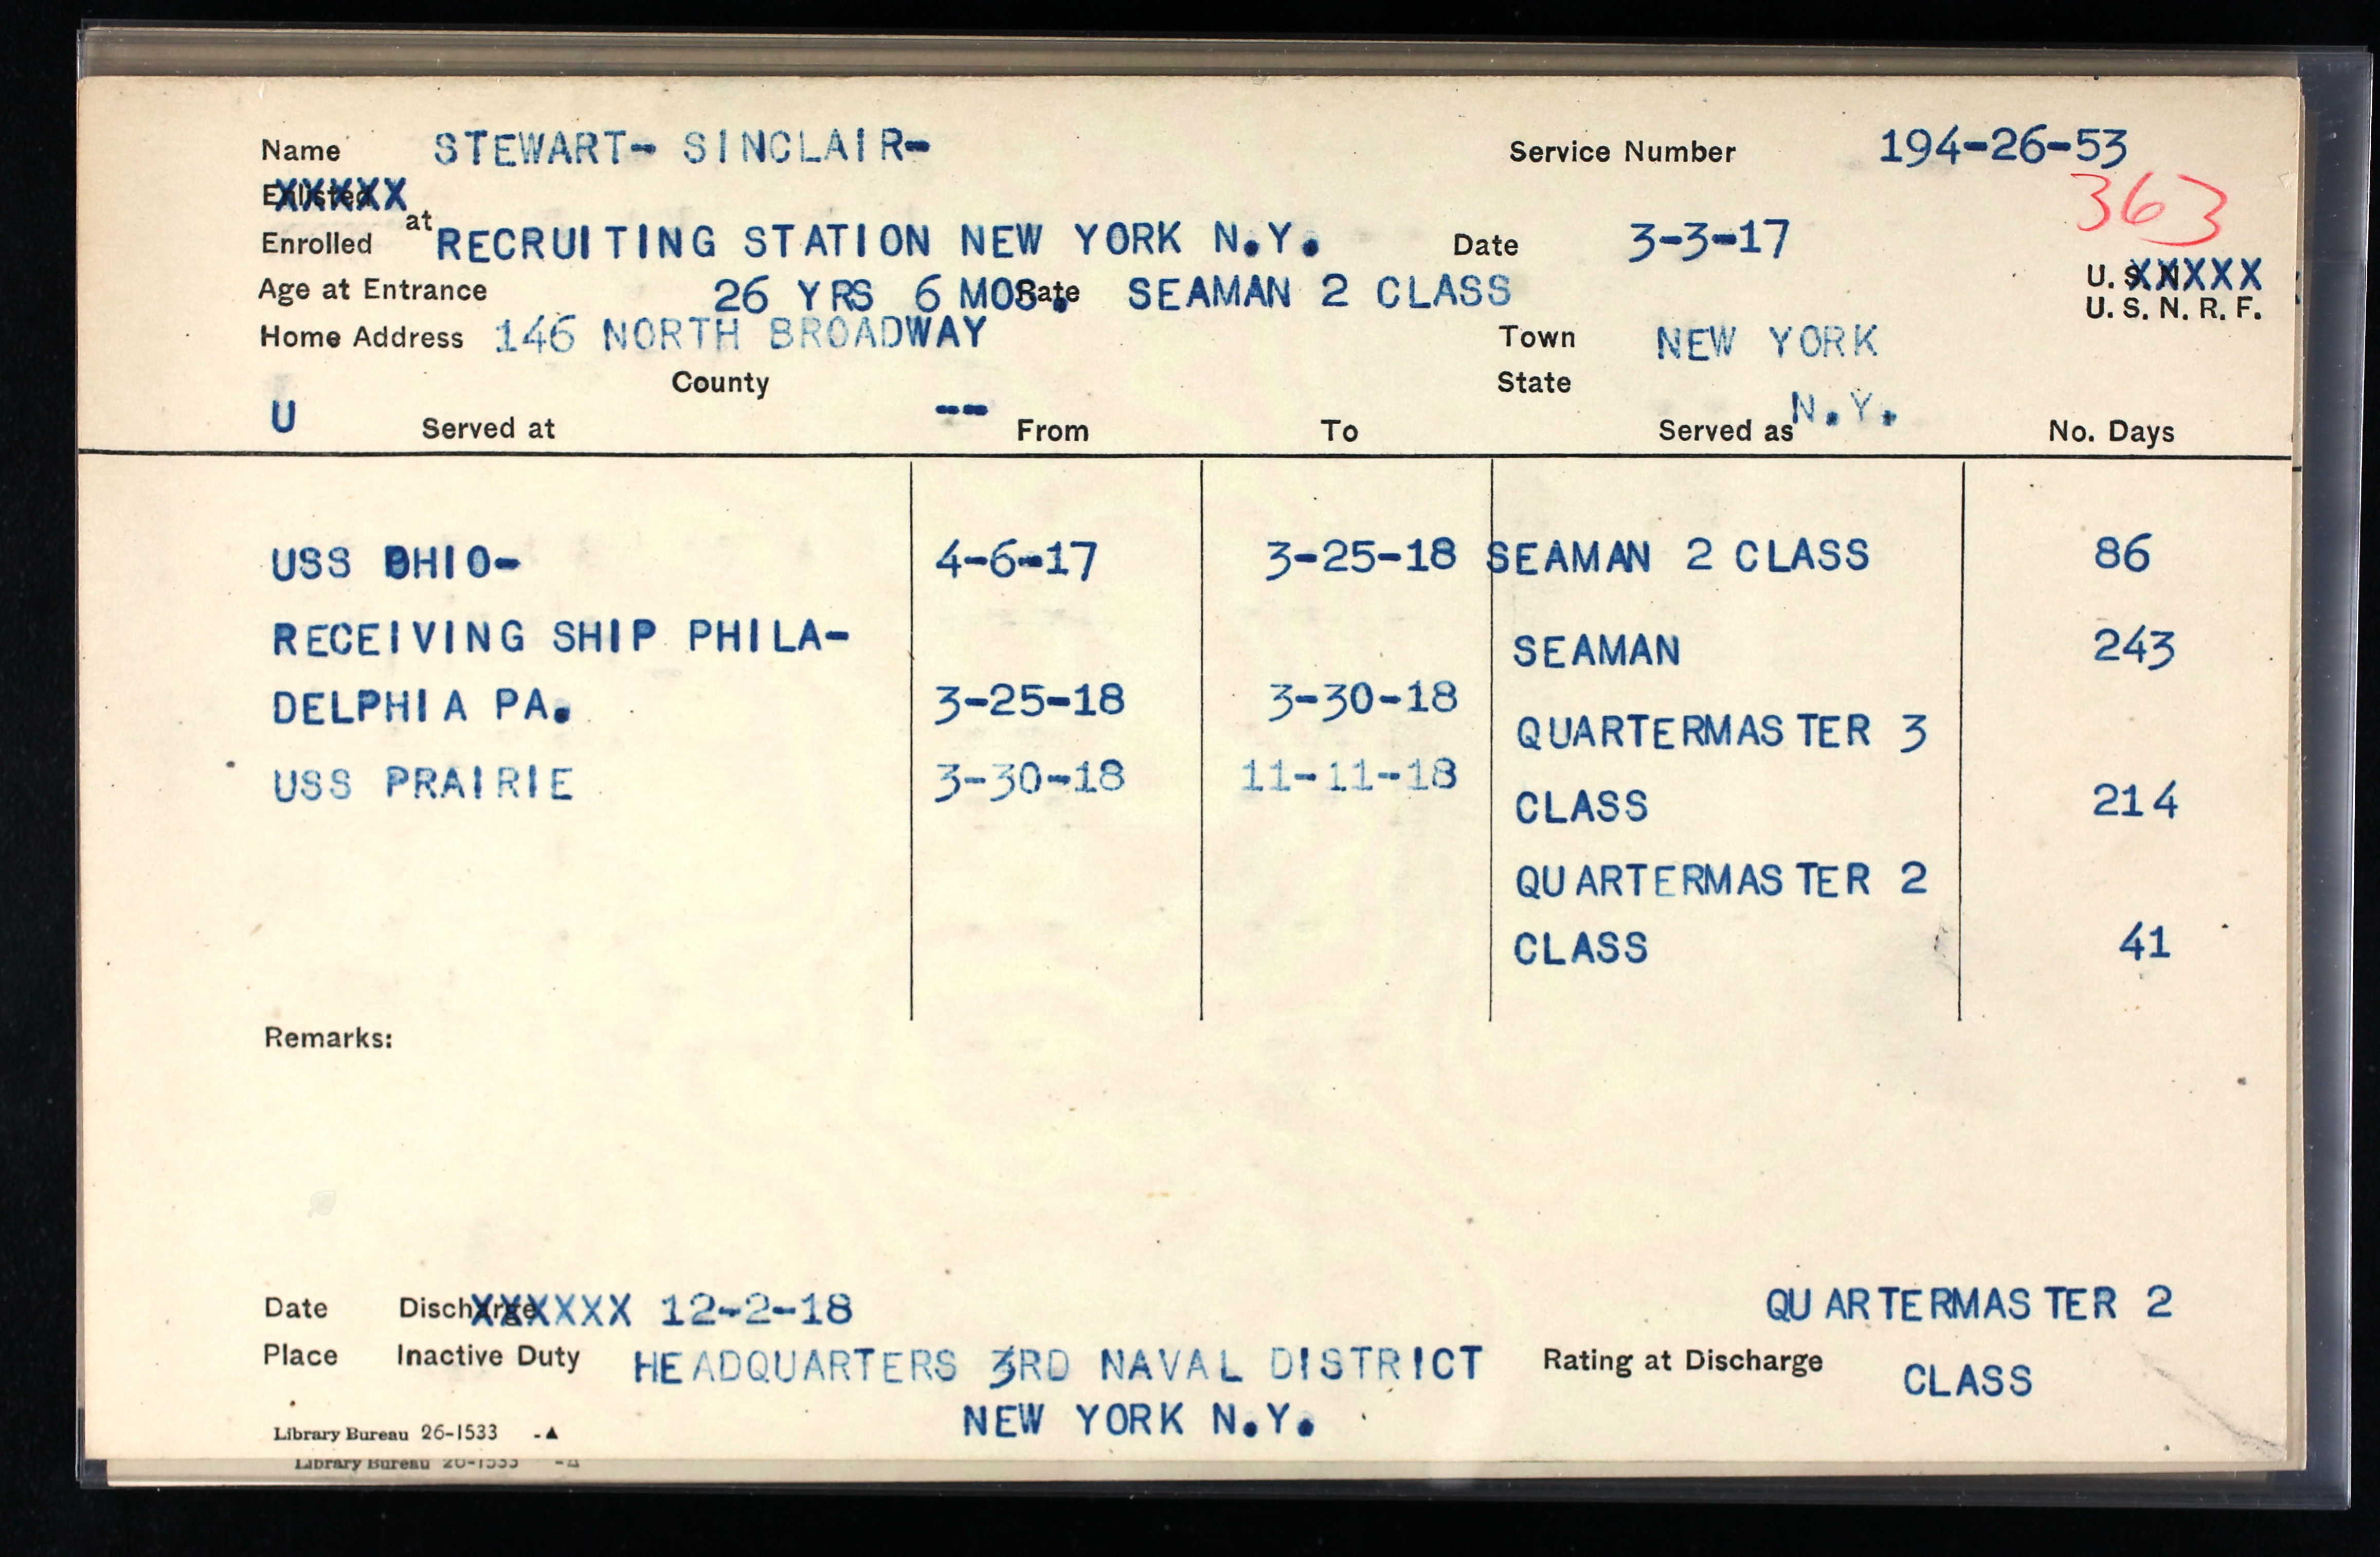 Name STEWART- SINCLAIR- Service Number 194-26-53
Enlisted XXXXX 363
Enrolled at RECRUITING STATION NEW YORK N.Y. Date 3-3-17
U.S.N. XXXXX
Age at Entrance 26 YRS 6 MOS. Rate SEAMAN 2 CLASS U. S. N. R. F.
Home Address 146 NORTH BROADWAY Town NEW YORK
County -- State N.Y.
U Served at From To Served as No. Days
USS OHIO- 4-6-17 3-25-18 SEAMAN 2 CLASS 86
RECEIVING SHIP PHILA- SEAMAN 243
DELPHIA PA. 3-25-18 3-30-18 QUARTERMASTER 3
USS PRAIRIE 3-30-18 11-11-18 CLASS 214
QUARTERMASTER 2
CLASS 41
Remarks:
Date Discharge XXXXXX 12-2-18 QUARTERMASTER 2
Place Inactive Duty HEADQUARTERS 3RD NAVAL DISTRICT Rating at Discharge CLASS
NEW YORK N.Y.
Library Bureau 26-1533 -▲
Library Bureau 26-1533